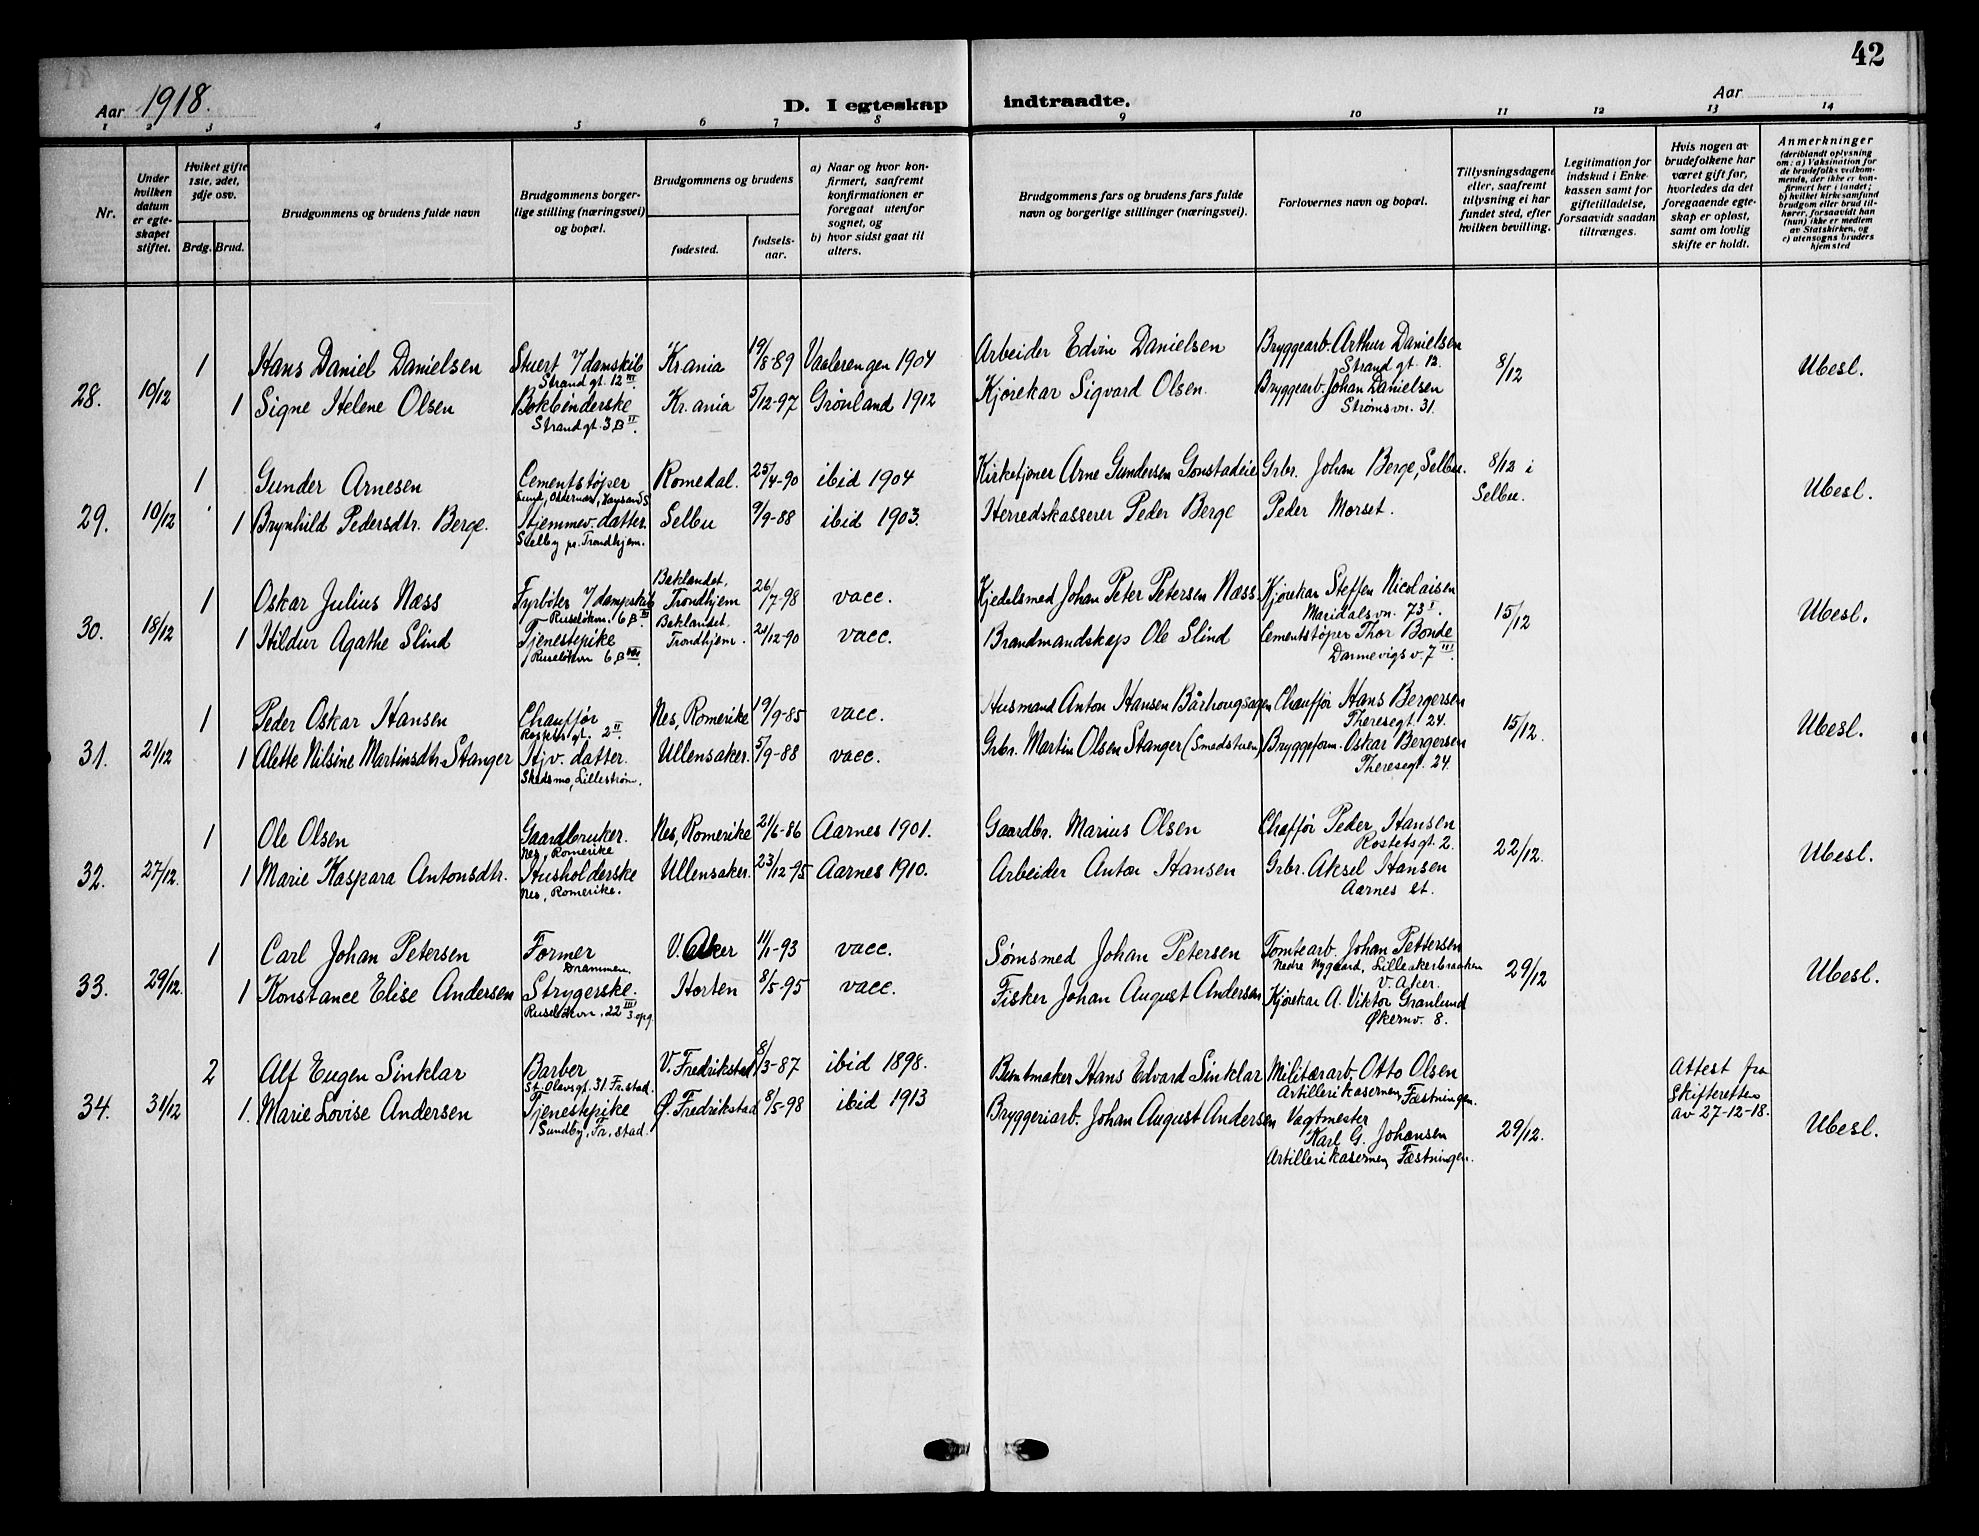 42
Aar 1918. D. I egteskap indtraadte. Aar
1 2 3 4 5 6 7 8 9 10 11 12 13 14
Nr.
Under hvilken datum er egte-skapet stiftet.
Hvilket gifte 1ste, 2det, 3dje osv.
Brdg. Brud.
Brudgommens og brudens fulde navn
Brudgommens borger-lige stilling (næringsvei) og bopæl.
Brudgommens og brudens
fødested.
fødsels-aar.
a) Naar og hvor kon-firmert, saafremt konfirmationen er foregaat utenfor sognet, og
b) hvor sidst gaat til alters.
Brudgommens fars og brudens fars fulde navn og borgerlige stillinger (næringsvei).
Forlovernes navn og bopæl.
Tillysningsdagene eller, saafremt tillysning ei har fundet sted, efter hvilken bevilling.
Legitimation for indskud i Enke-kassen samt for giftetilladelse, forsaavidt saadan tiltrænges.
Hvis nogen av brudefolkene har været gift før, hvorledes da det foregaaende egte-skap er opløst, samt om lovlig skifte er holdt.
Anmerkninger
(deriblandt oplysning om: a) Vaksination for de brudefolks vedkom-mende, der ikke er kon-firmert her i landet; b) hvilket kirkesamfund brudgom eller brud til-hører, forsaavidt han (hun) ikke er medlem av Statskirken, og c) utensogns bruders hjemsted
28. 10/12
1 Hans Daniel Danielsen Stuert i/damskib Kr.ania 19/8-89 Vaalerengen 1904 Arbeider Edvin Danielsen Bryggearb. Arthur Danielsen 8/12 Ubesl.
Strand gt. 12 III. Strand gt. 12.
1 Signe Helene Olsen Bokbinderske Kr.ania 5/12-97 Grønland 1912 Kjørekar Sigvard Olsen. Bryggearb. Johan Danielsen
Strand gt. 3 B II. Strømsvn. 31.
29. 10/12
1 Gunder Arnesen Cementstøper Romedal. 25/4-90 ibid 1904 Kirketjener Arne Gundersen Gonstadeie Grbr. Johan Berge, Selbu. 8/12 i Selbu. Ubesl.
1 Brynhild Pedersdtr. Berge. Hjemmev. datter. Selbu 9/9-88 ibid 1903. Herredskasserer Peder Berge Peder Morset.
Selby pr. Trondhjem.
30. 18/12
1 Oskar Julius Næss Fyrbøter i/dampskib Baklandet, Trondhjem 26/7-98 vacc. Kjedelsmed Johan Peter Petersen Næss. Kjørekar Steffen Nicolaisen 15/12 Ubesl.
Ruseløkvn. 6 B III Maridalsvn. 73 I.
1 Hildur Agathe Slind Tjenestepike Baklandet, Trondhjem. 21/12-90 vacc. Brandmandskap Ole Slind Cementstøper Thor Bonde
Ruseløkvn 6 B III. Danmevigsv. 7 III.
31. 21/12
1 Peder Oskar Hansen Chauffør Nes, Romerike 19/9-85 vacc. Husmand Anton Hansen Bårhougsagen Chauffør Hans Bergersen 15/12. Ubesl.
Rostets gt. 2 II. Theresegt. 24.
1 Alette Nilsine Martinsdtr. Stanger Hjv. datter. Ullensaker. 5/9-88 vacc. Grbr. Martin Olsen Stanger (Smedstuen) Bryggeform. Oskar Bergersen
Skedsmo, Lillestrøm. Theresegt. 24.
32. 27/12.
1 Ole Olsen Gaardbruker. Nes, Romerike 21/6-86 Aarnes 1901. Gaardbr. Marius Olsen Chaffør Peder Hansen 22/12. Ubesl.
Nes, Romerike Rostetsgt. 2.
1 Marie Kaspara Antonsdtr. Husholderske Ullensaker. 23/12-95 Aarnes 1910. Arbeider Anton Hansen Grbr. Aksel Hansen
Nes, Romerike. Aarnes st.
33. 29/12.
1 Carl Johan Petersen Former V. Aker 11/1-93 vacc. Sømsmed Johan Petersen Tomtearb. Johan Pettersen 29/12 Ubesl.
Drammen. Nedre Nygaard, Lilleakerbraaten V. Aker.
1 Konstance Elise Andersen Strygerske. Horten 8/5-95 vacc. Fisker Johan August Andersen Kjørekar A. Viktor Granlund
Ruseløkvn. 22 III 3 opg. Økernv. 8.
34. 31/12
2 Alf Eugen Sinklar Barber V. Fredrikstad 8/3-87 ibid 1898. Buntmaker Hans Edvard Sinklar Militærarb. Otto Olsen Attest fra Skifteretten av 27-12-18.
St. Olavsgt. 31 Fr.stad. Artillerikasernen, Fæstningen.
1. Marie Lovise Andersen Tjenestepike Ø. Fredrikstad 8/5-98 ibid 1913 Bryggeriarb. Johan August Andersen Vagtmester Karl G. Johansen 29/12. Ubesl.
Sundby, Fr.stad. Artillerikasernen, Fæstningen.